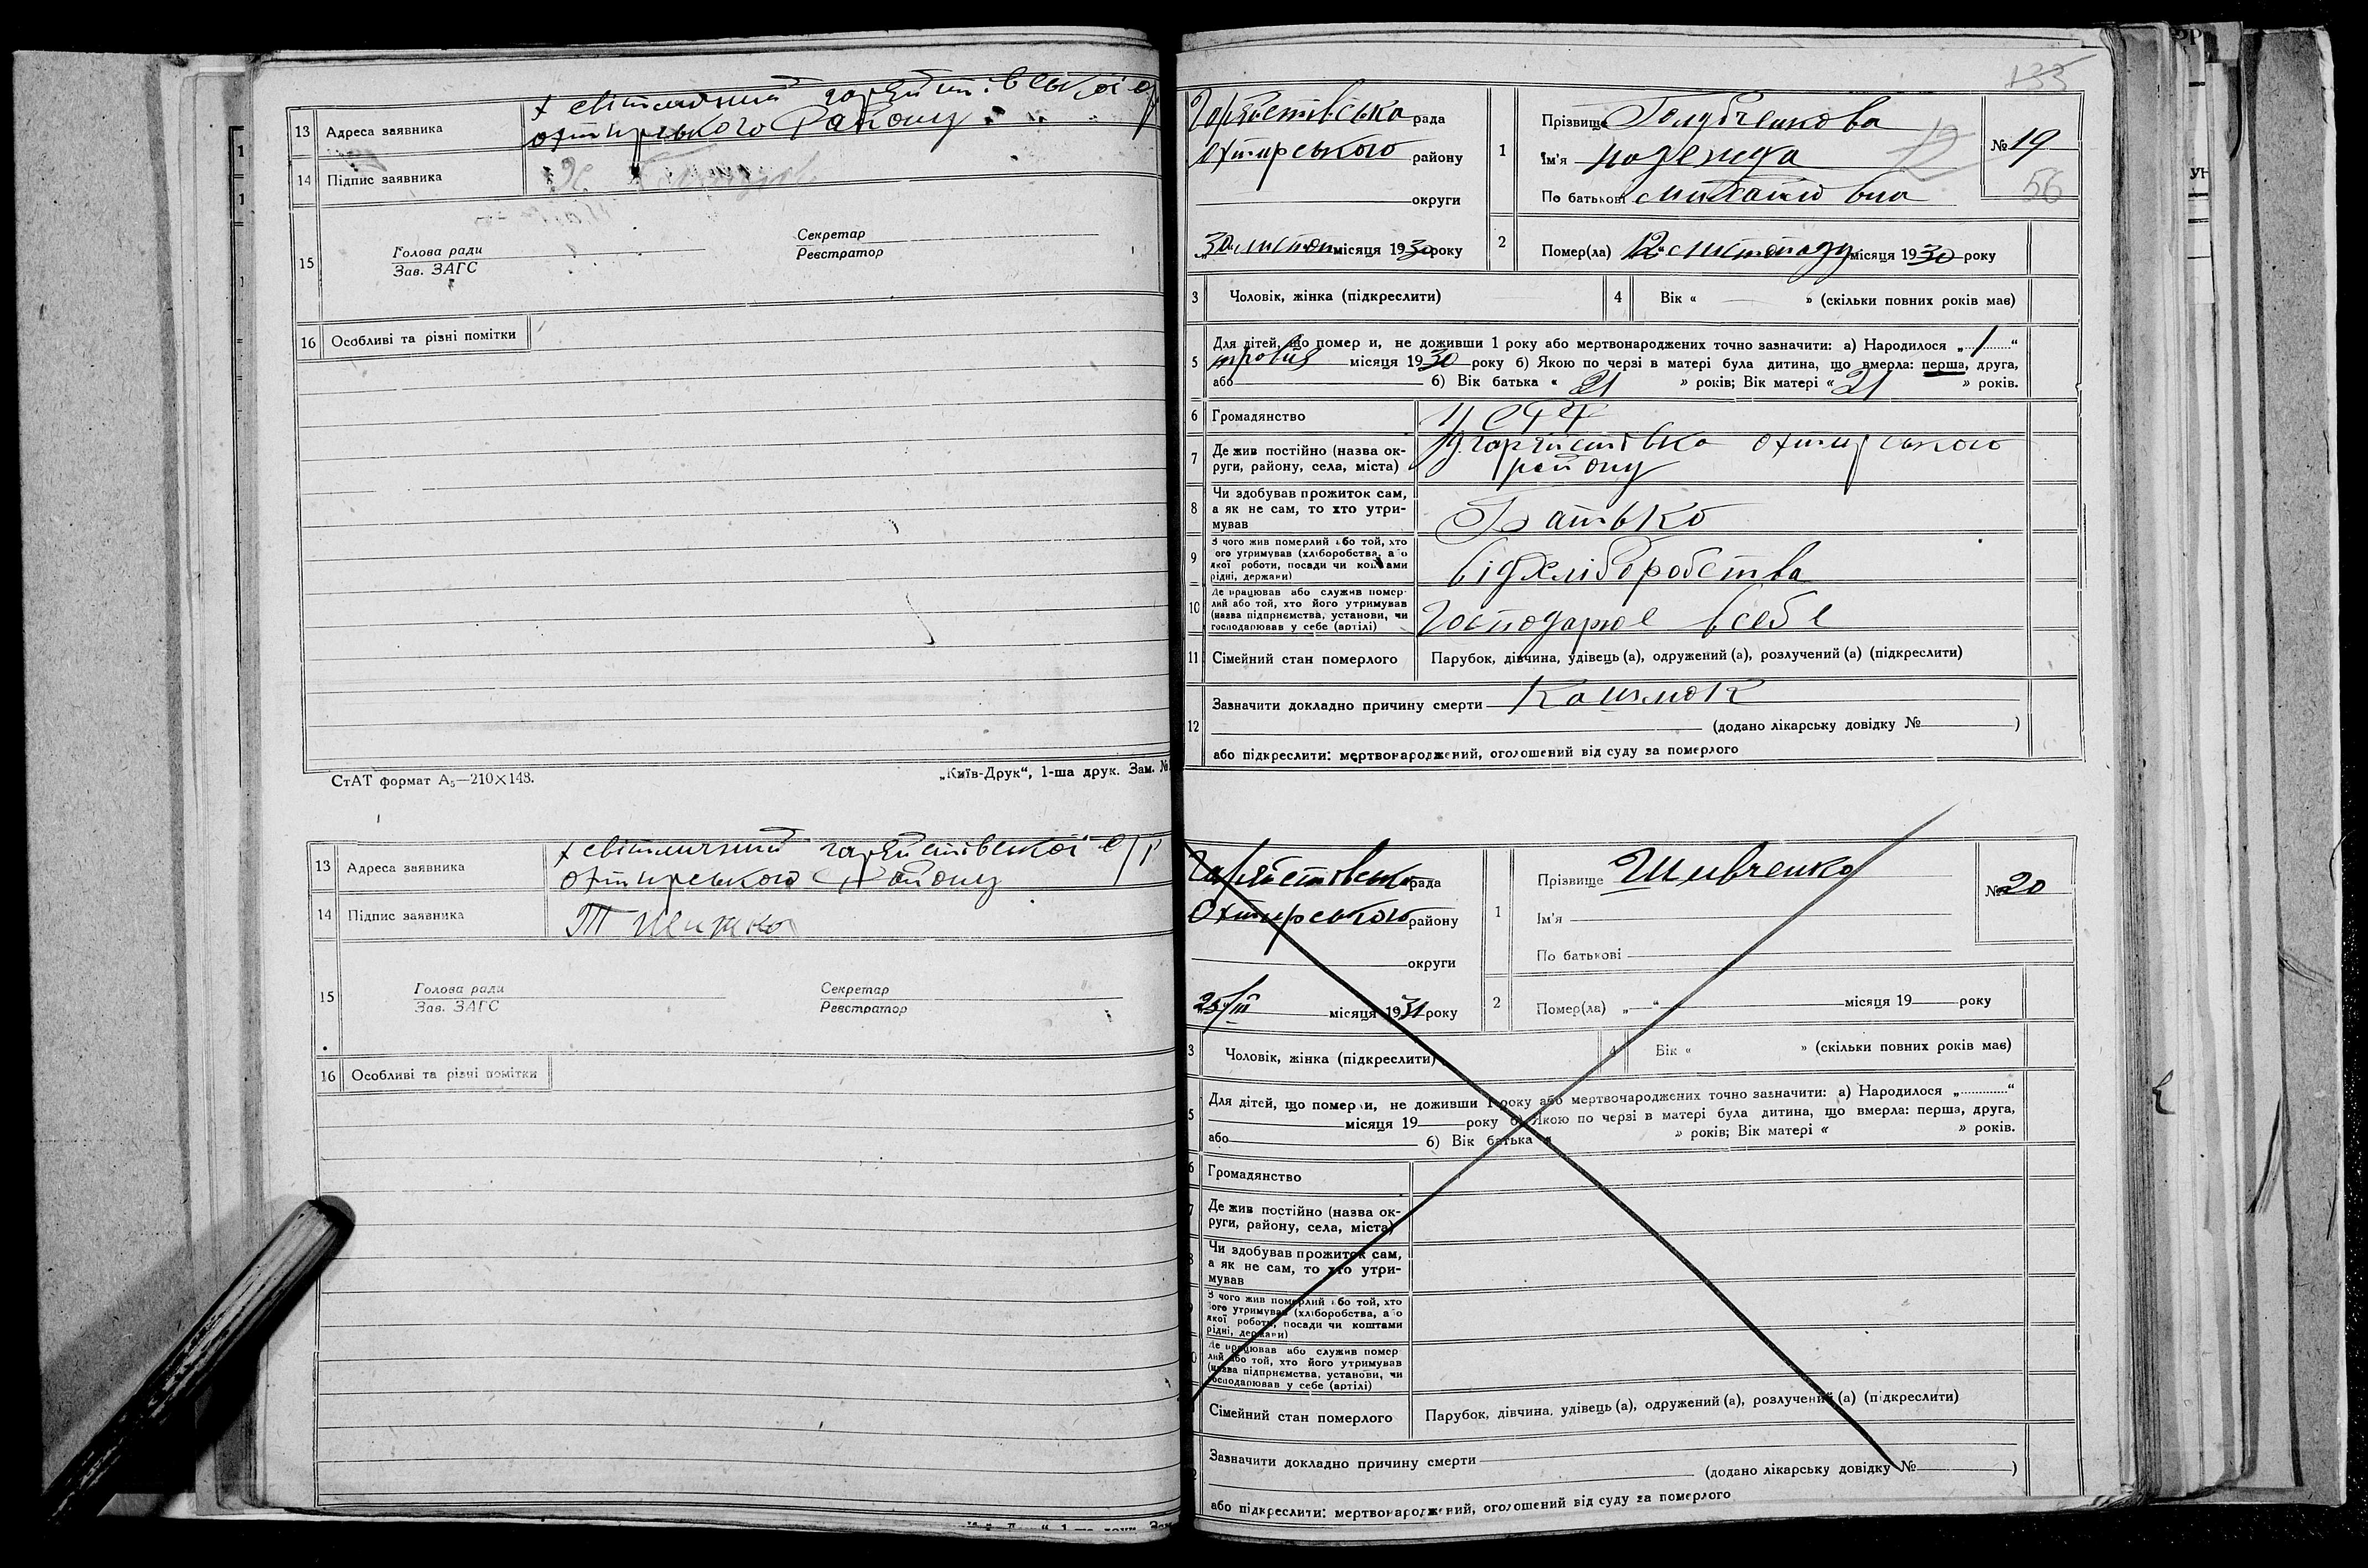 13 Адреса заявника
х світличний гаряйстівської с/р
охтирського Району
14 Підпис заявника
15 Голова ради
Зав. ЗАГС
Секретар
Реєстратор
16 Особливі та різні помітки
СтАТ формат А₅—210×148.
„Київ-Друк“, 1-ша друк. Зам. №
13 Адреса заявника
х світличний гаряйстівської с/р
охтирського Району
14 Підпис заявника
15 Голова ради
Зав. ЗАГС
Секретар
Реєстратор
16 Особливі та різні помітки
133
Гаряйстівська рада
Охтирського району
округи
„30“ листоп місяця 1930 року
1
Прізвище Голубченкова
Ім'я
По батькові Михайловна
№ 19
12
56
2
Помер(ла) „12“ листопаду місяця 1930 року
3 Чоловік, жінка (підкреслити)
4 Вік « » (скільки повних років має)
5 Для дітей, що померли, не доживши 1 року або мертвонароджених точно зазначити: а) Народилося „1“
травня місяця 1930 року б) Якою по черзі в матері була дитина, що вмерла: перша, друга,
або б) Вік батька « 21 » років; Вік матері « 21 » років.
6 Громадянство УСРР
7 Де жив постійно (назва округи, району, села, міста)
гаряйстівка охтирського
району
8 Чи здобував прожиток сам,
а як не сам, то хто утри-
мував
Батько
9 З чого жив померлий або той, хто
його утримував (хліборобства, або
якої роботи, посади чи коштами
рідні, держави)
від хліборобства
10 Де працював або служив помер-
лий або той, хто його утримував
(назва підприємства, установи, чи
господарював у себе (артілі)
Господарює в себе
11 Сімейний стан померлого
Парубок, дівчина, удівець (а), одружений (а), розлучений (а) (підкреслити)
12 Зазначити докладно причину смерти Кашлюк
(додано лікарську довідку № )
або підкреслити: мертвонароджений, оголошений від суду за померлого
Гаряйстівська рада
Охтирського району
округи
25/III місяця 1931 року
1
Прізвище Шевченко
Ім'я
По батькові
№ 20
2
Помер(ла) „ “ місяця 19 року
3 Чоловік, жінка (підкреслити)
4 Вік « » (скільки повних років має)
5 Для дітей, що померли, не доживши 1 року або мертвонароджених точно зазначити: а) Народилося „ “
місяця 19 року б) Якою по черзі в матері була дитина, що вмерла: перша, друга,
або б) Вік батька « » років; Вік матері « » років.
6 Громадянство
7 Де жив постійно (назва ок-
руги, району, села, міста)
8 Чи здобував прожиток сам,
а як не сам, то хто утри-
мував
З чого жив померлий або той, хто
його утримував (хліборобства, або
якої роботи, посади чи коштами
рідні, держави)
Де працював або служив помер-
лий або той, хто його утримував
(назва підприємства, установи, чи
господарював у себе (артілі)
Сімейний стан померлого
Парубок, дівчина, удівець (а), одружений (а), розлучений (а) (підкреслити)
Зазначити докладно причину смерти
(додано лікарську довідку № )
або підкреслити: мертвонароджений, оголошений від суду за померлого